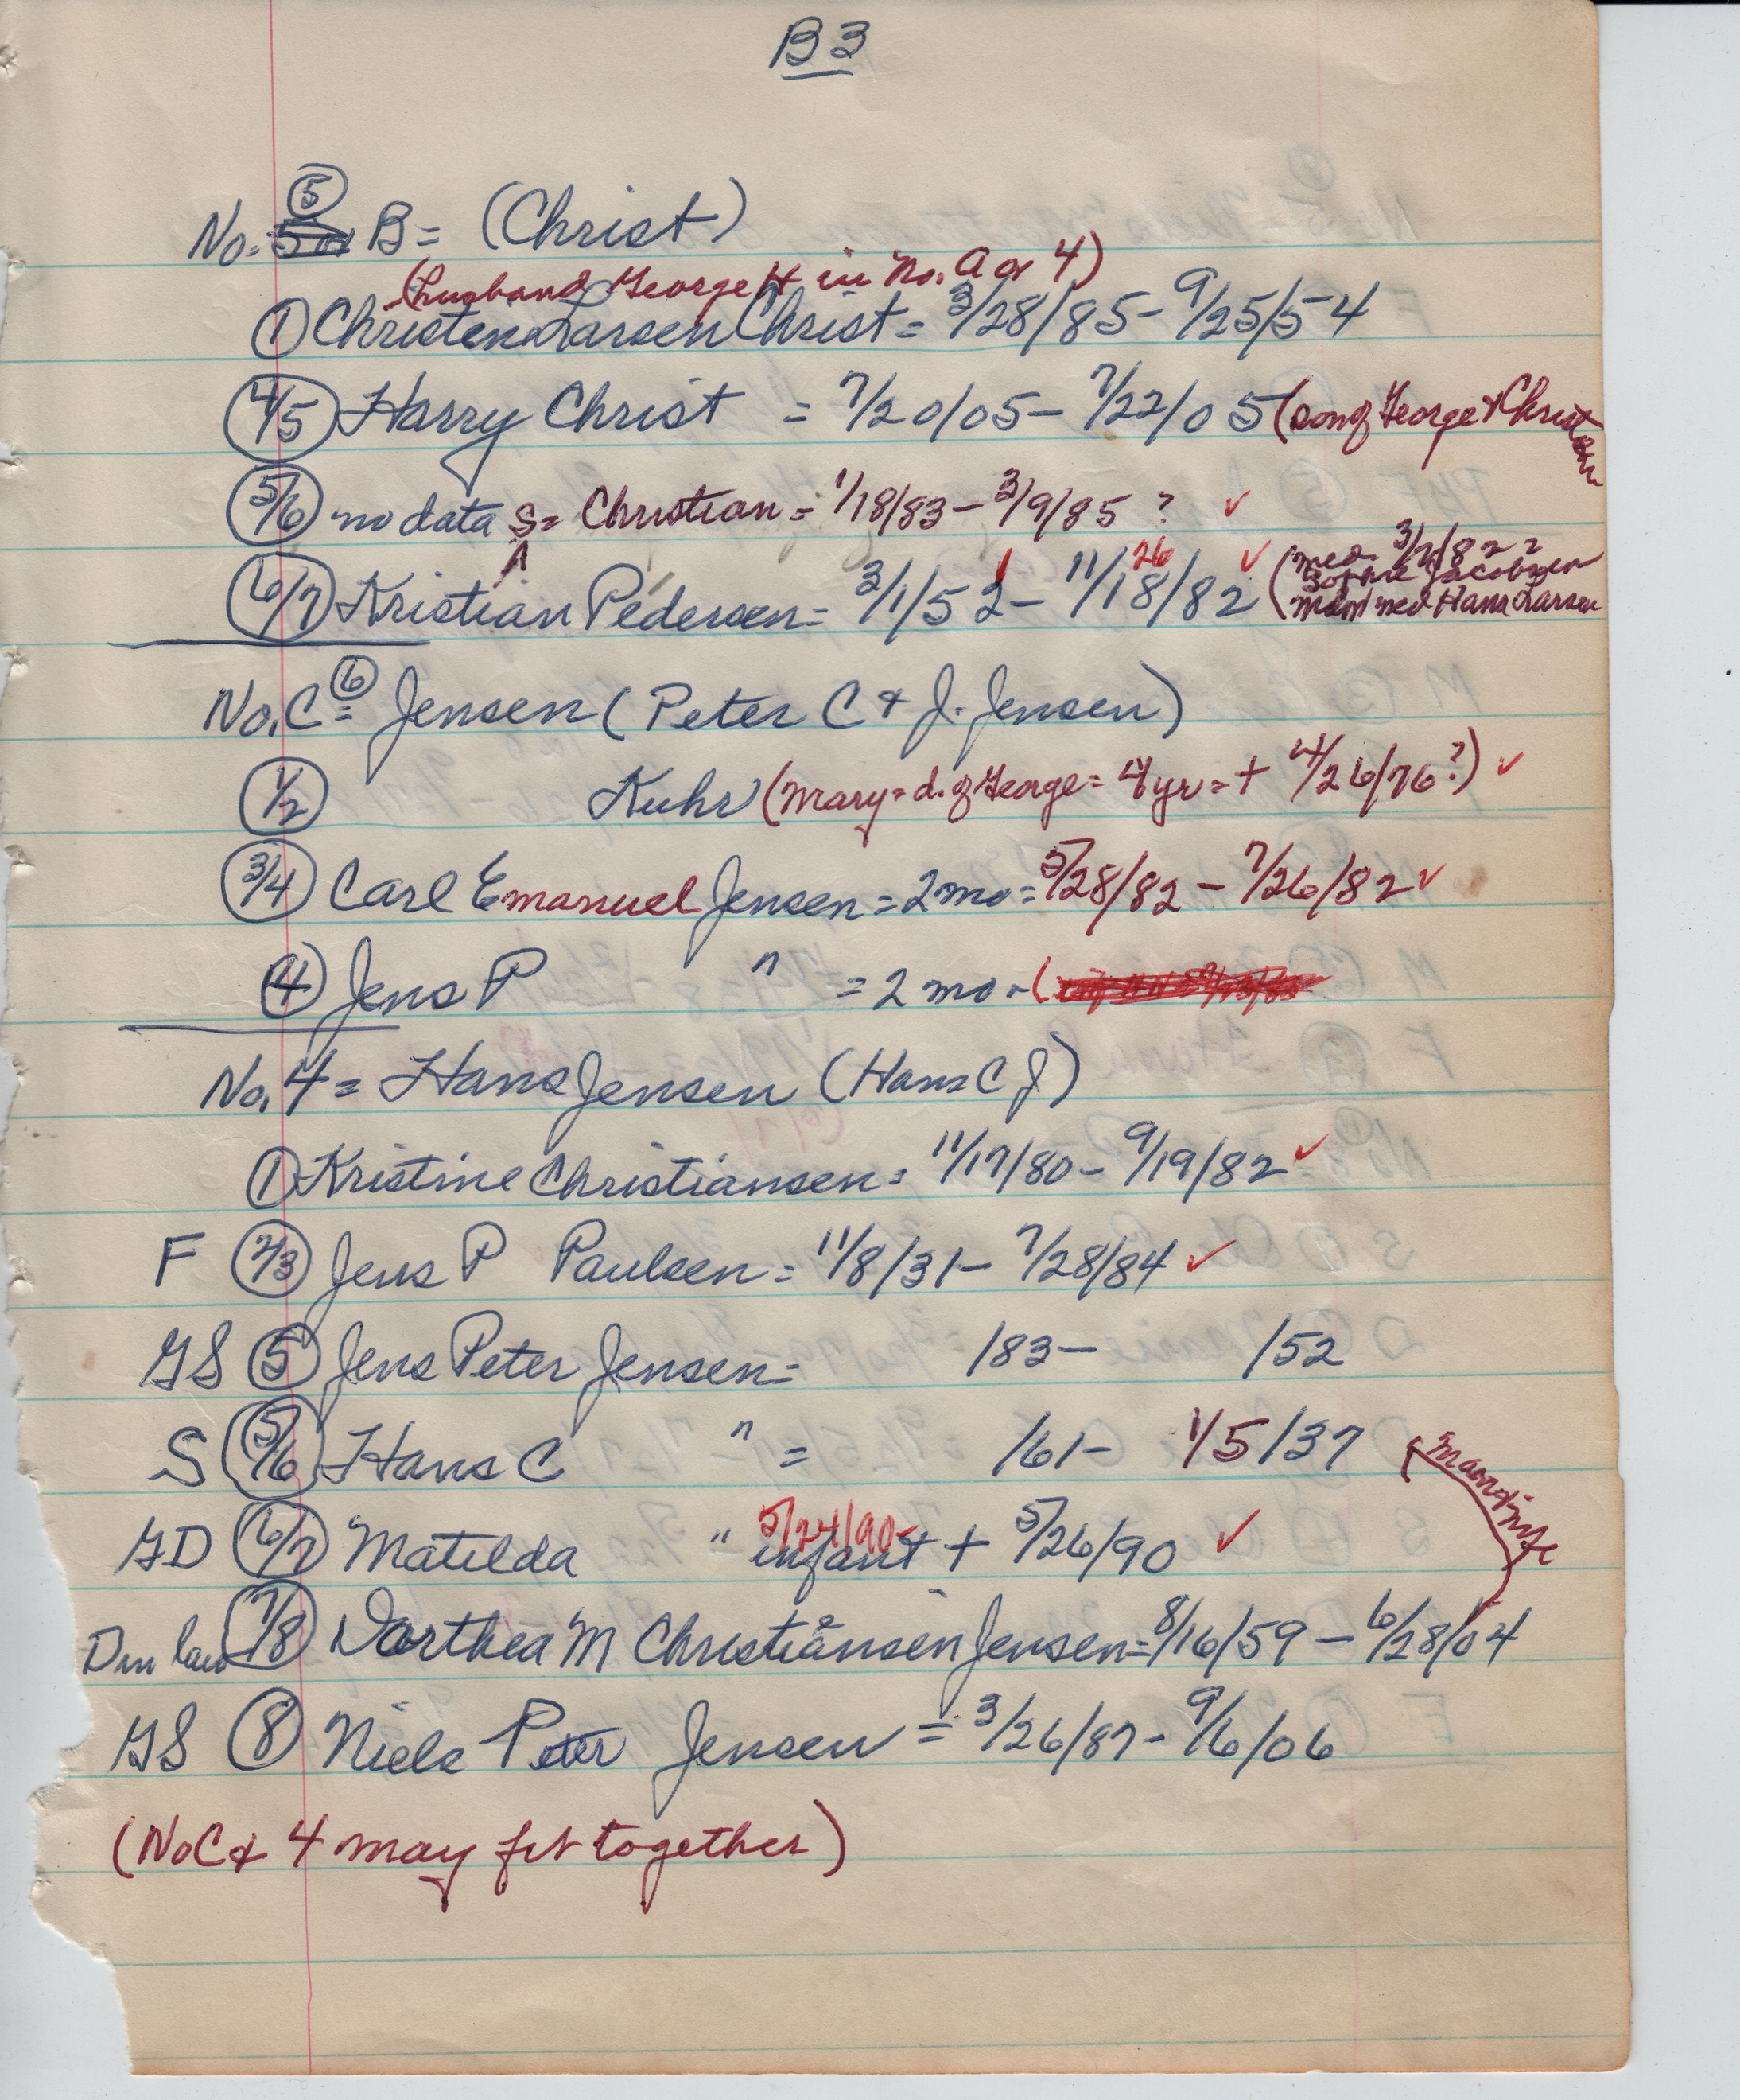 B3
No. 5 B = (Christ)
(husband George H in No. A or 4)
① Christena Larsen Christ = 3/28/85 - 9/25/54
4/5 Harry Christ = 7/20/05 - 7/22/05 (son of George & Christ
5/6 no data S = Christian = 1/18/83 - 3/9/85 ? ✓
6/7 Kristian Pedersen = 3/1/52 - 11/18/82 26 ✓ (med 3/2/82 2
Sophie Jacobsen
med Hans Larsen
No. C ⑥ = Jensen (Peter C & J. Jensen)
1/2 Kuhr (Mary = d. of George = 4 yr = + 4/26/76?) ✓
3/4 Carl Emanuel Jensen = 2 mo = 5/28/82 - 7/26/82 ✓
④ Jens P " = 2 mo - (
No. 4 = Hans Jensen (Hans C J)
① Kristine Christiansen = 11/17/80 - 9/19/82 ✓
F 2/3 Jens P Paulsen = 11/8/31 - 7/28/84 ✓
GS ⑤ Jens Peter Jensen = /83 - /52
S 5/6 Hans C " = /61 - 1/5/37
man & wife
GD 6/7 Matilda " infant 5/24/90 - + 5/26/90 ✓
D in law 7/8 Dorthea M Christiansen Jensen = 8/16/59 - 6/28/04
GS ⑧ Niels Peter Jensen = 3/26/87 - 9/6/06
(No C & 4 may fit together)